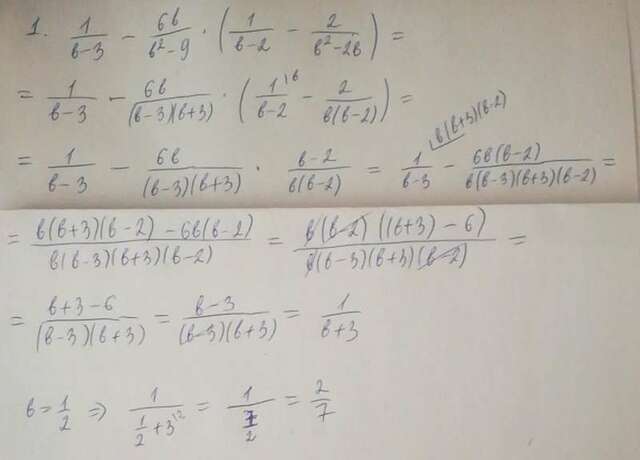 1. 1/(в-3) - 6в/(в²-9) · (1/(в-2) - 2/(в²-2в)) =
= 1/(в-3) - 6в/((в-3)(в+3)) · (1^{\в}/(в-2) - 2/(в(в-2))) =
= 1/(в-3) - 6в/((в-3)(в+3)) · (в-2)/(в(в-2)) = 1^{\в(в+3)(в-2)}/(в-3) - 6в(в-2)/(в(в-3)(в+3)(в-2)) =
= (в(в+3)(в-2) - 6в(в-2))/(в(в-3)(в+3)(в-2)) = (в(в-2)((в+3) - 6))/(в(в-3)(в+3)(в-2)) =
= (в+3-6)/((в-3)(в+3)) = (в-3)/((в-3)(в+3)) = 1/(в+3)
в = 1/2 ⇒ 1/(1/2 + 3^{\2}) = 1/(7/2) = 2/7